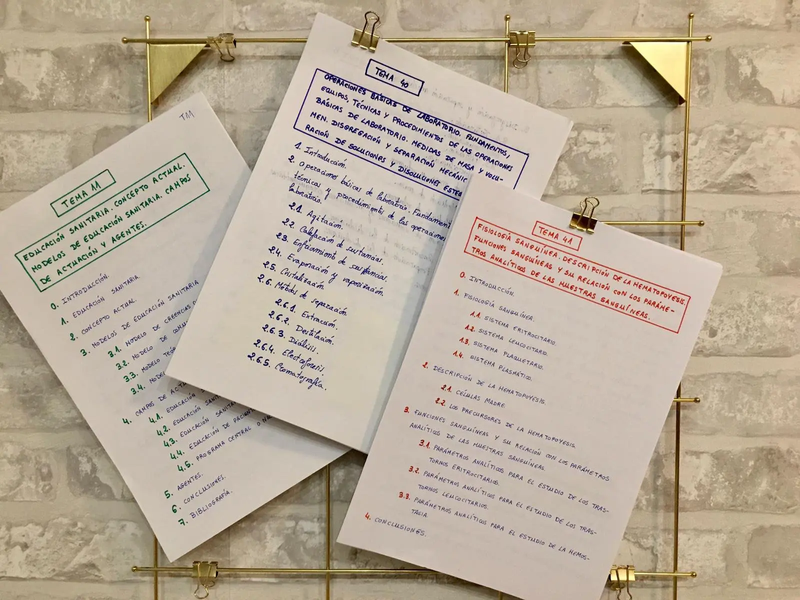 TM
TEMA 11
EDUCACIÓN SANITARIA. CONCEPTO ACTUAL.
MODELOS DE EDUCACIÓN SANITARIA. CAMPOS
DE ACTUACIÓN Y AGENTES.
0. INTRODUCCIÓN
1. EDUCACIÓN SANITARIA
2. CONCEPTO ACTUAL.
3. MODELOS DE EDUCACIÓN SANITARIA
3.1. MODELO DE CREENCIAS
3.2. MODELO DE
3.3. MODELO
3.4. MODELO
4. CAMPOS DE
4.1. EDUCACIÓN
4.2. EDUCACIÓN
4.3. EDUCACIÓN SANITARIA
4.4. EDUCACIÓN DE
4.5. PROGRAMA CENTRAL
5. AGENTES.
6. CONCLUSIONES
7. BIBLIOGRAFÍA.
TEMA 40
OPERACIONES BÁSICAS DE LABORATORIO. FUNDAMENTOS,
EQUIPOS, TÉCNICAS Y PROCEDIMIENTOS DE LAS OPERACIONES
BÁSICAS DE LABORATORIO. MEDIDAS DE MASA Y VOLU-
MEN. DISGREGACIÓN Y SEPARACIÓN
RACIÓN DE SOLUCIONES Y DISOLUCIONES
1. Introducción.
2. Operaciones básicas de laboratorio. Fundamentos
técnicas y procedimientos de las operaciones
laboratorio.
2.1. Agitación.
2.2. Calefacción de sustancias.
2.3. Enfriamiento de sustancias
2.4. Evaporación y vaporización.
2.5. Cristalización
2.6. Métodos de separación
2.6.1. Extracción.
2.6.2. Destilación.
2.6.3. Diálisis.
2.6.4. Electroforesis.
2.6.5. Cromatografía.
TEMA 41
FISIOLOGÍA SANGUÍNEA. DESCRIPCIÓN DE LA HEMATOPOYESIS.
FUNCIONES SANGUÍNEAS Y SU RELACIÓN CON LOS PARÁME-
TROS ANALÍTICOS DE LAS MUESTRAS SANGUÍNEAS.
0. INTRODUCCIÓN
1. FISIOLOGÍA SANGUÍNEA.
1.1. SISTEMA ERITROCITARIO.
1.2. SISTEMA LEUCOCITARIO.
1.3. SISTEMA PLAQUETARIO.
1.4. SISTEMA PLASMÁTICO.
2. DESCRIPCIÓN DE LA HEMATOPOYESIS.
2.1. CÉLULAS MADRE
2.2. LOS PRECURSORES DE LA HEMATOPOYESIS.
3. FUNCIONES SANGUÍNEAS Y SU RELACIÓN CON LOS PARÁMETROS
ANALÍTICOS DE LAS MUESTRAS SANGUÍNEAS
3.1. PARÁMETROS ANALÍTICOS PARA EL ESTUDIO DE LOS TRAS-
TORNOS ERITROCITARIOS.
3.2. PARÁMETROS ANALÍTICOS PARA EL ESTUDIO DE LOS TRAS-
TORNOS LEUCOCITARIOS.
3.3. PARÁMETROS ANALÍTICOS PARA EL ESTUDIO DE LA HEMOS-
TASIA
4. CONCLUSIONES.